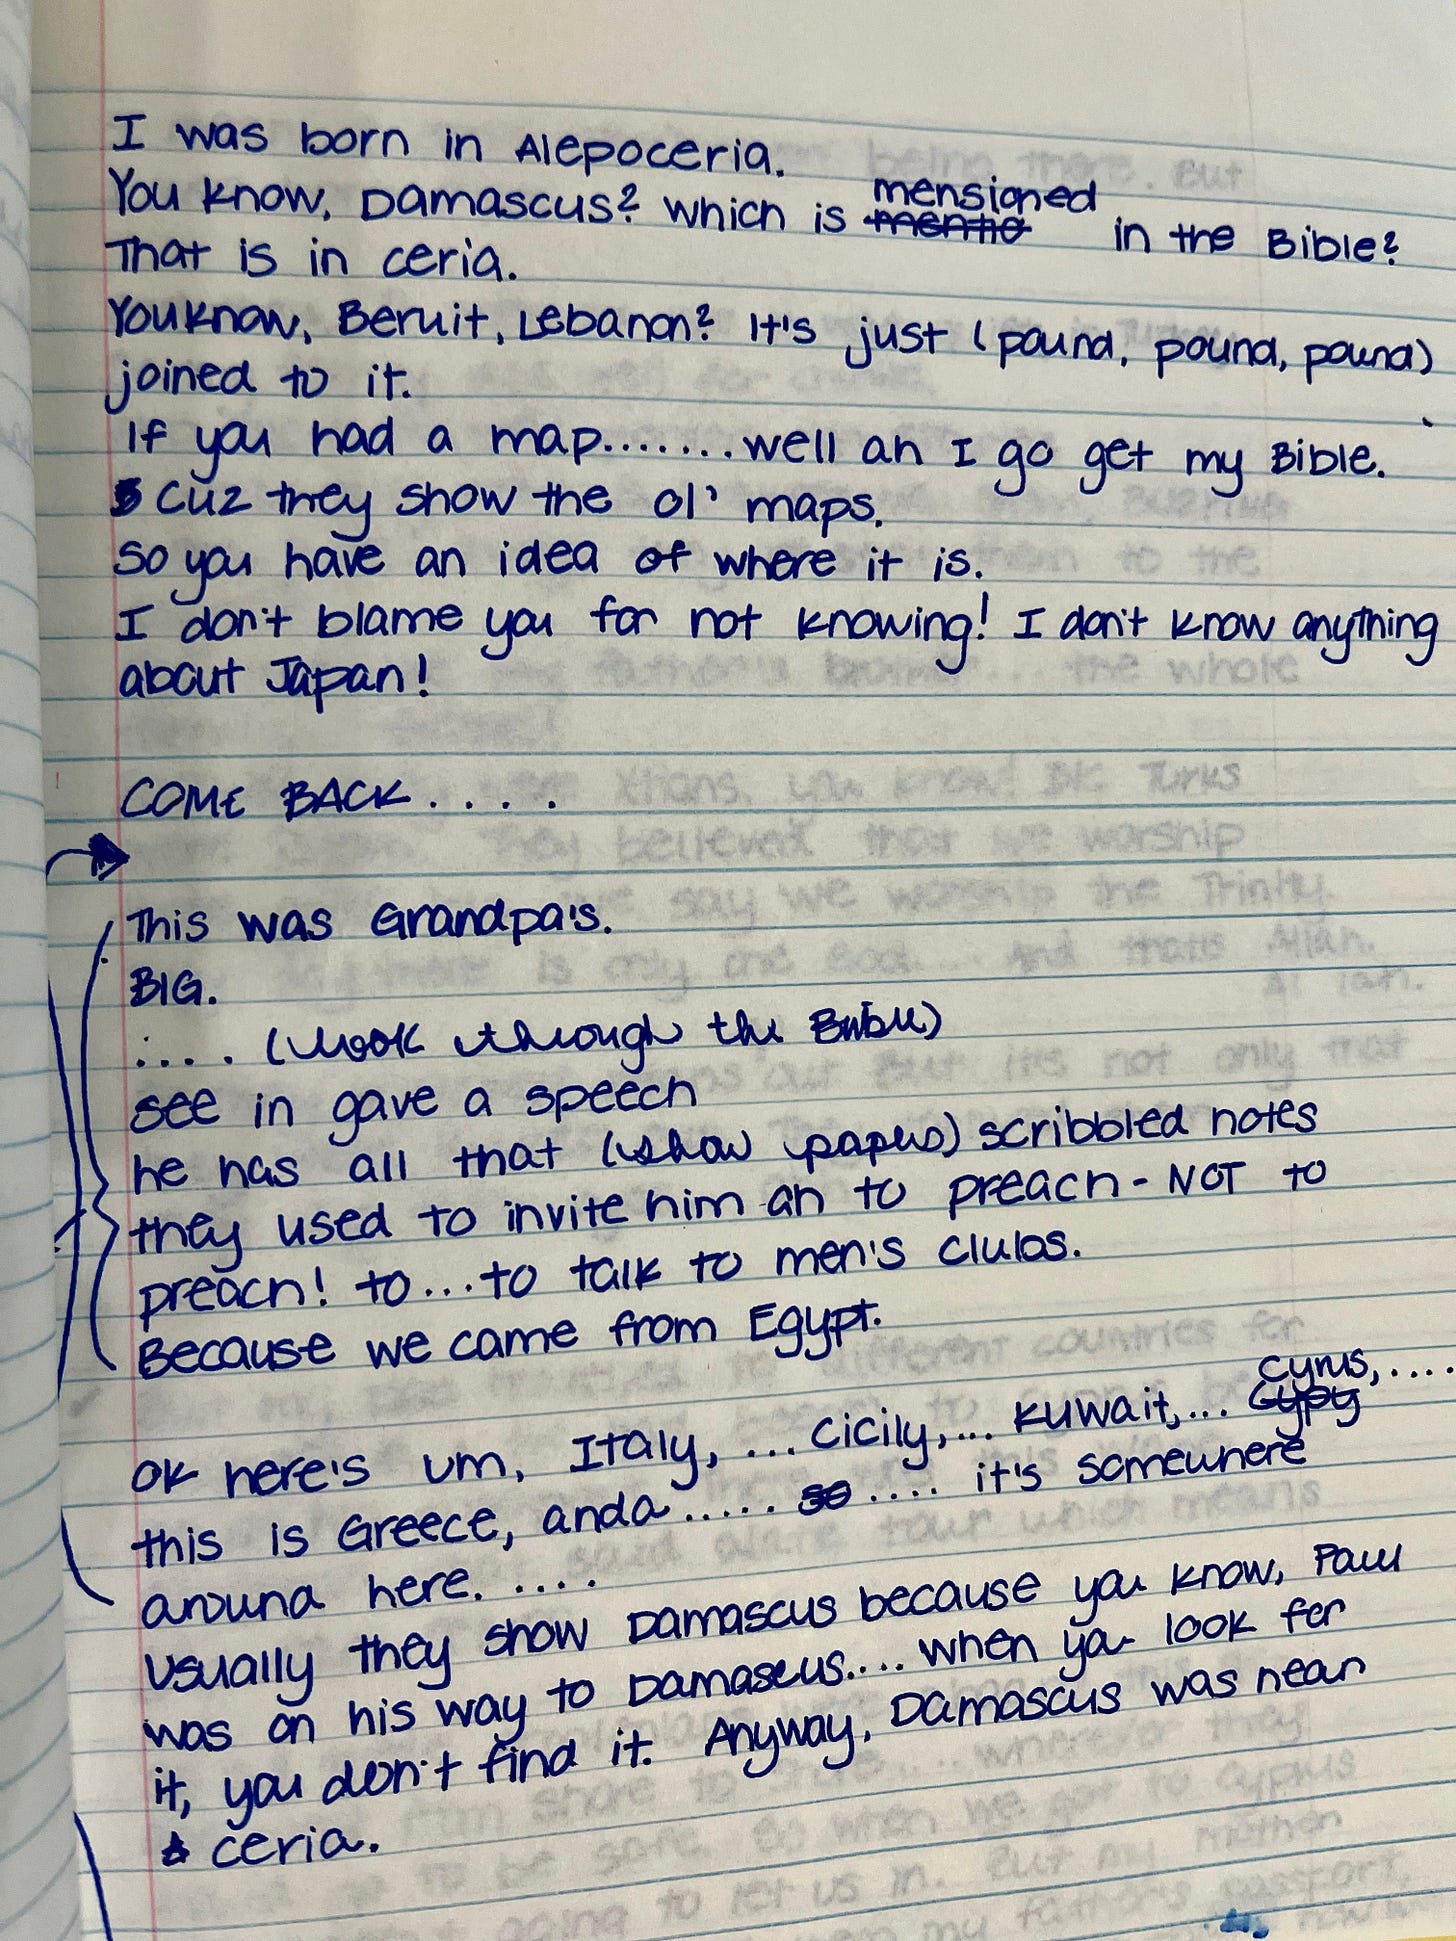 I was born in Alepoceria.
You know, Damascus? which is mensioned in the Bible?
That is in ceria.
You know, Beruit, Lebanon? It's just (pound, pound, pound)
joined to it.
If you had a map.......well ah I go get my Bible.
Cuz they show the ol' maps.
So you have an idea of where it is.
I don't blame you for not knowing! I don't know anything
about Japan!
COME BACK....
This was Grandpa's.
BIG.
.... (look through the Bible)
see in gave a speech
he has all that (show papers) scribbled notes
they used to invite him ah to preach - NOT to
preach! to...to talk to men's clubs.
Because we came from Egypt.
OK here's um, Italy, ...cicily,... Kuwait,... Cyrus,....
this is Greece, anda..... so .... it's somewhere
around here. ....
Usually they show Damascus because you know, Paul
was on his way to Damascus.... when ya look for
it, you don't find it. Anyway, Damascus was near
ceria.